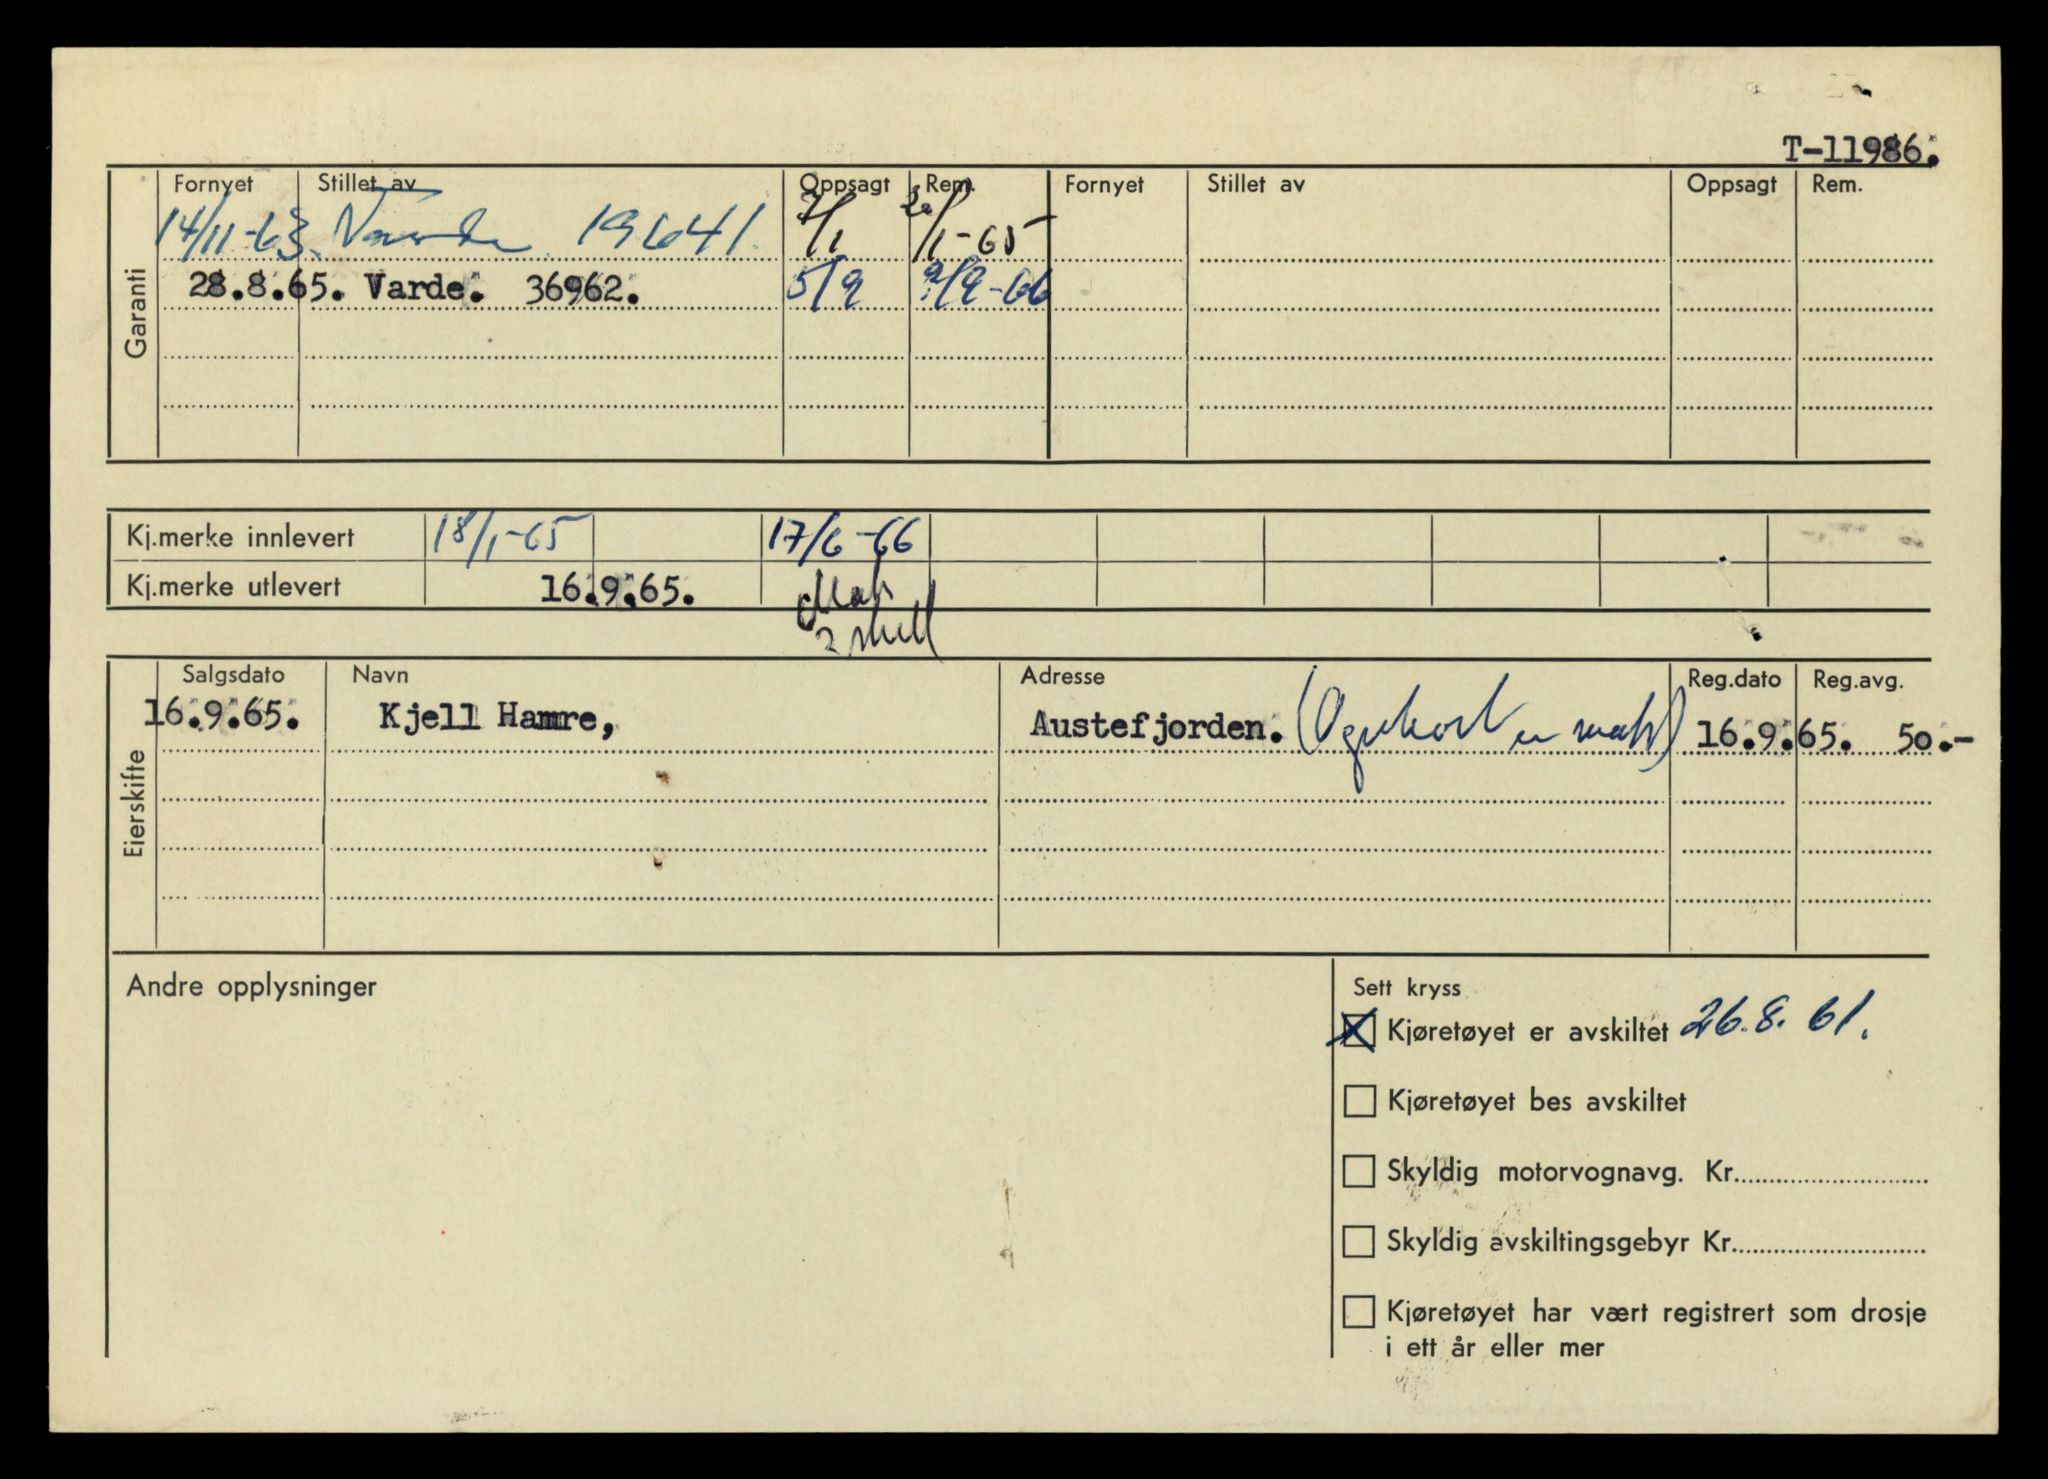 T-11986.
Fornyet Stillet av Oppsagt Rem. Fornyet Stillet av Oppsagt Rem.
14/11-63. 19641. 2/1 20/1-65
28.8.65. Varde. 36962. 5/9 9/9-66
Garanti
Kj.merke innlevert 18/1-65 17/6-66
Kj.merke utlevert 16.9.65.
2 skilt
Salgsdato Navn Adresse Reg.dato Reg.avg.
16.9.65. Kjell Hamre, Austefjorden. 16.9.65. 50.-
Eierskifte
Andre opplysninger
Sett kryss
Kjøretøyet er avskiltet 26.8.61.
Kjøretøyet bes avskiltet
Skyldig motorvognavg. Kr.
Skyldig avskiltingsgebyr Kr.
Kjøretøyet har vært registrert som drosje
i ett år eller mer